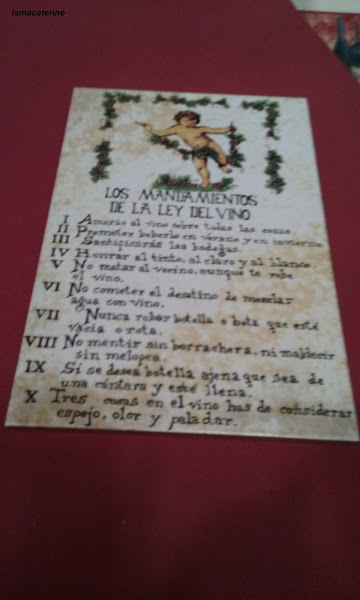 lamacaterine
LOS MANDAMIENTOS
DE LA LEY DEL VINO
I Amarás al vino sobre todas las cosas.
II Prometer beberlo en verano y en invierno.
III Santificarás las bodegas.
IV Honrar al tinto, al claro y al blanco.
V No matar al vecino, aunque te robe
el vino.
VI No cometer el desatino de mezclar
agua con vino.
VII Nunca robar botella o bota que esté
vacía o rota.
VIII No mentir sin borrachera, ni maldecir
sin melopea.
IX Si se desea botella ajena que sea de
una cántara y esté llena.
X Tres cosas en el vino has de considerar
espejo, olor y paladar.